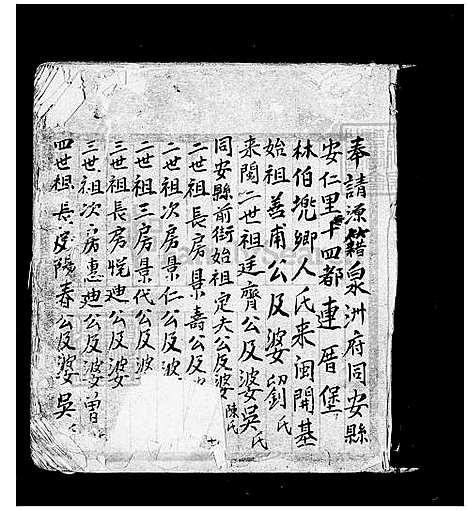 奉請源籍泉洲府同安縣
安仁里十四都連厝堡
林伯兠鄉人氏来闽開基
始祖善甫公及婆劉氏
来閩二世祖廷齊公及婆吳氏
同安縣前街始祖定夫公及婆陳氏
二世祖長房景壽公及婆
二世祖次房景仁公及波
二世祖三房景代公及波
三世祖長房悦廸公及婆
三世祖次房惠廸公及婆曾
四世祖長房陽春公及婆吳氏